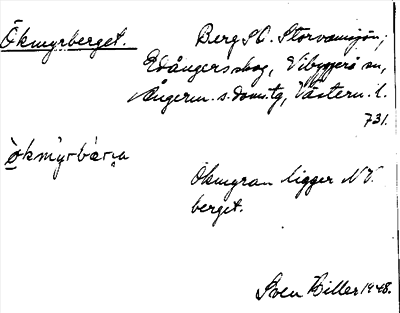 Ökmyrberget. Berg S O. Storvamsjön,
Edångers skog, Vibyggerå sn,
Ångerm. s. doms.tg, Västern. l.
731.
ò̱kmỳrbàrɟa
Ökmyran ligger N V.
berget.
Sven Hiller 1948.